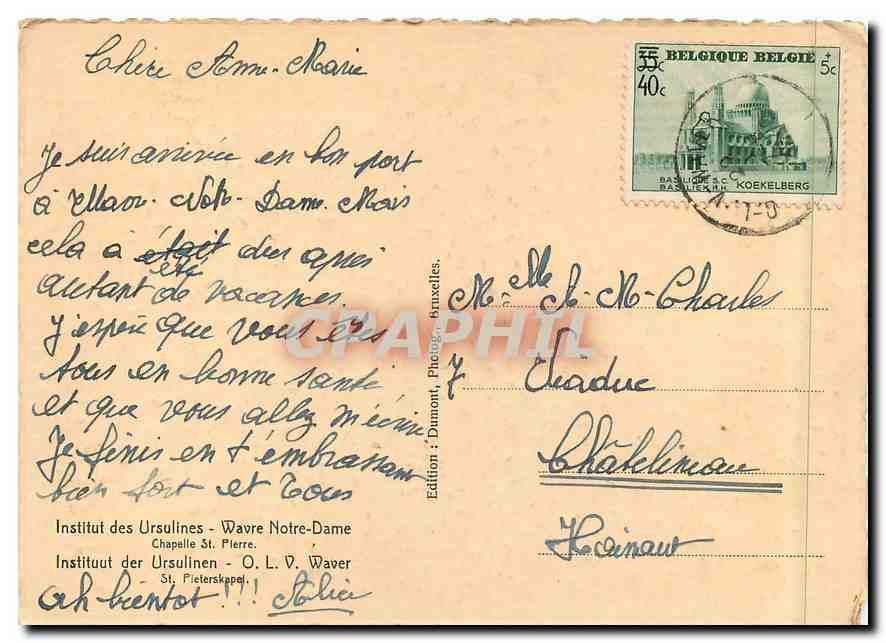 Chère Anne-Marie
Je suis arrivée en bon port
à Wavre-Notre-Dame. Mais
cela à était été dur après
autant de vacances.
J'espère que vous êtes
tous en bonne santé
et que vous allez m'écrire
Je finis en t'embrassant
bien fort et tous
Institut des Ursulines - Wavre Notre-Dame
Chapelle St. Pierre.
Instituut der Ursulinen - O. L. V. Waver
St. Pieterskapel.
ah bientot !!! Alice
Edition : Dumont, Photogr. Bruxelles.
CPAPHIL
35c BELGIQUE BELGIË + 5c
40c
BASILIQUE S.C.
BASILIEK H.H. KOEKELBERG
Melle A-M-Charles
7 Viaduc
Châtelineau
Hainaut